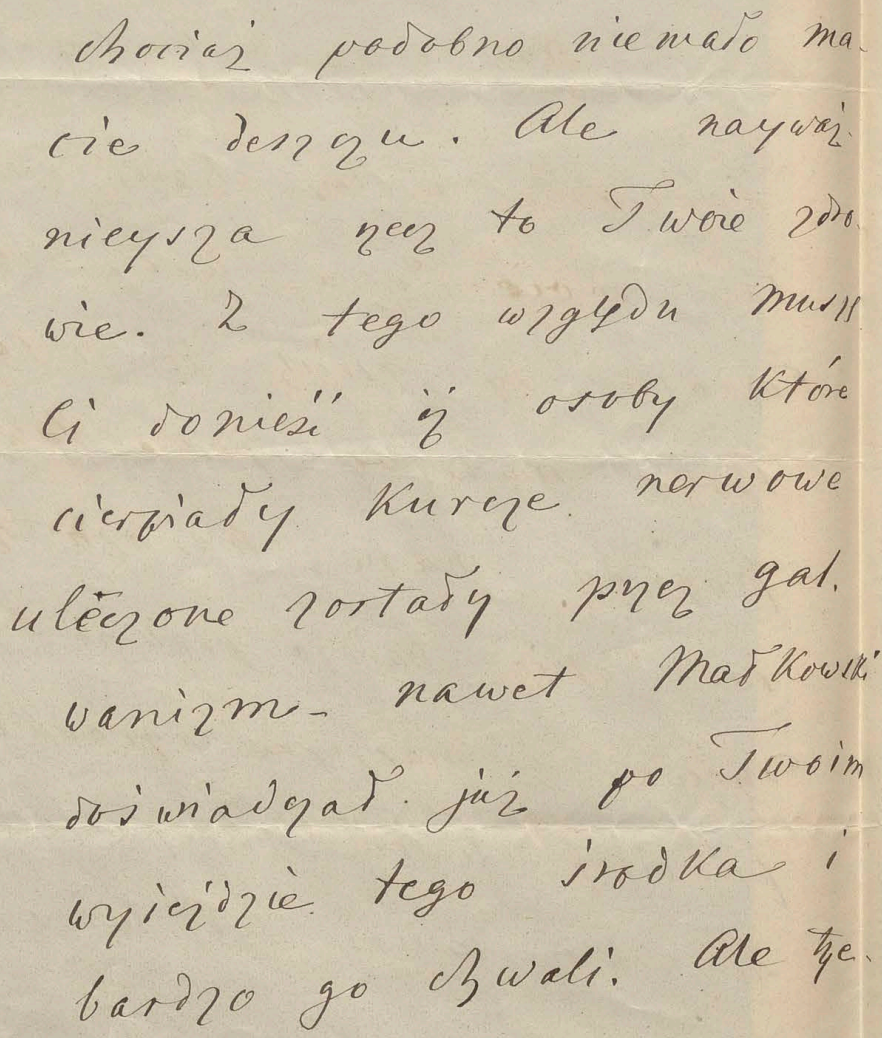 chociaż podobno niemało ma-
cie deszczu. Ale nayważ-
nieysza rzecz to Twoie zdro-
wie. Z tego względu muszę
Ci donieść iż osoby które
cierpiały Kurcze nerwowe
uleczone zostały przez gal-
wanizm - nawet Małkowski
doświadczał już po Twoim
wyieździe tego środka i
bardzo go chwali. Ale trze-